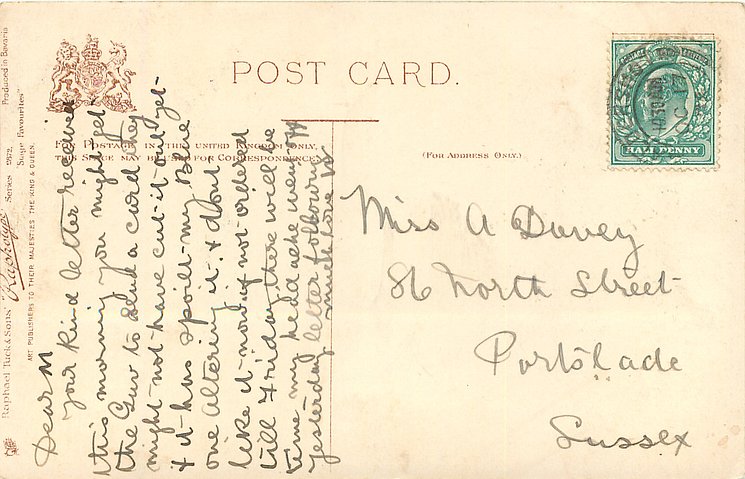 POST CARD.
FOR POSTAGE IN THE UNITED KINGDOM ONLY,
THIS SPACE MAY BE USED FOR CORRESPONDENCE
(FOR ADDRESS ONLY.)
HALF PENNY
Miss A Davey
86 North Street
Portslade
Sussex
Dear M
your kind letter received
this morning you might get
the Guv to send a card they
might not have cut it out yet
& it has spoilt my Blue
one altering it & dont
like it now if not ordered
till Friday there will be
time my head ache went off
yesterday letter following
much love
Raphael Tuck & Sons' "Rapholype" Series 2972.
"Stage Favourites"
Produced in Bavaria
ART PUBLISHERS TO THEIR MAJESTIES THE KING & QUEEN.